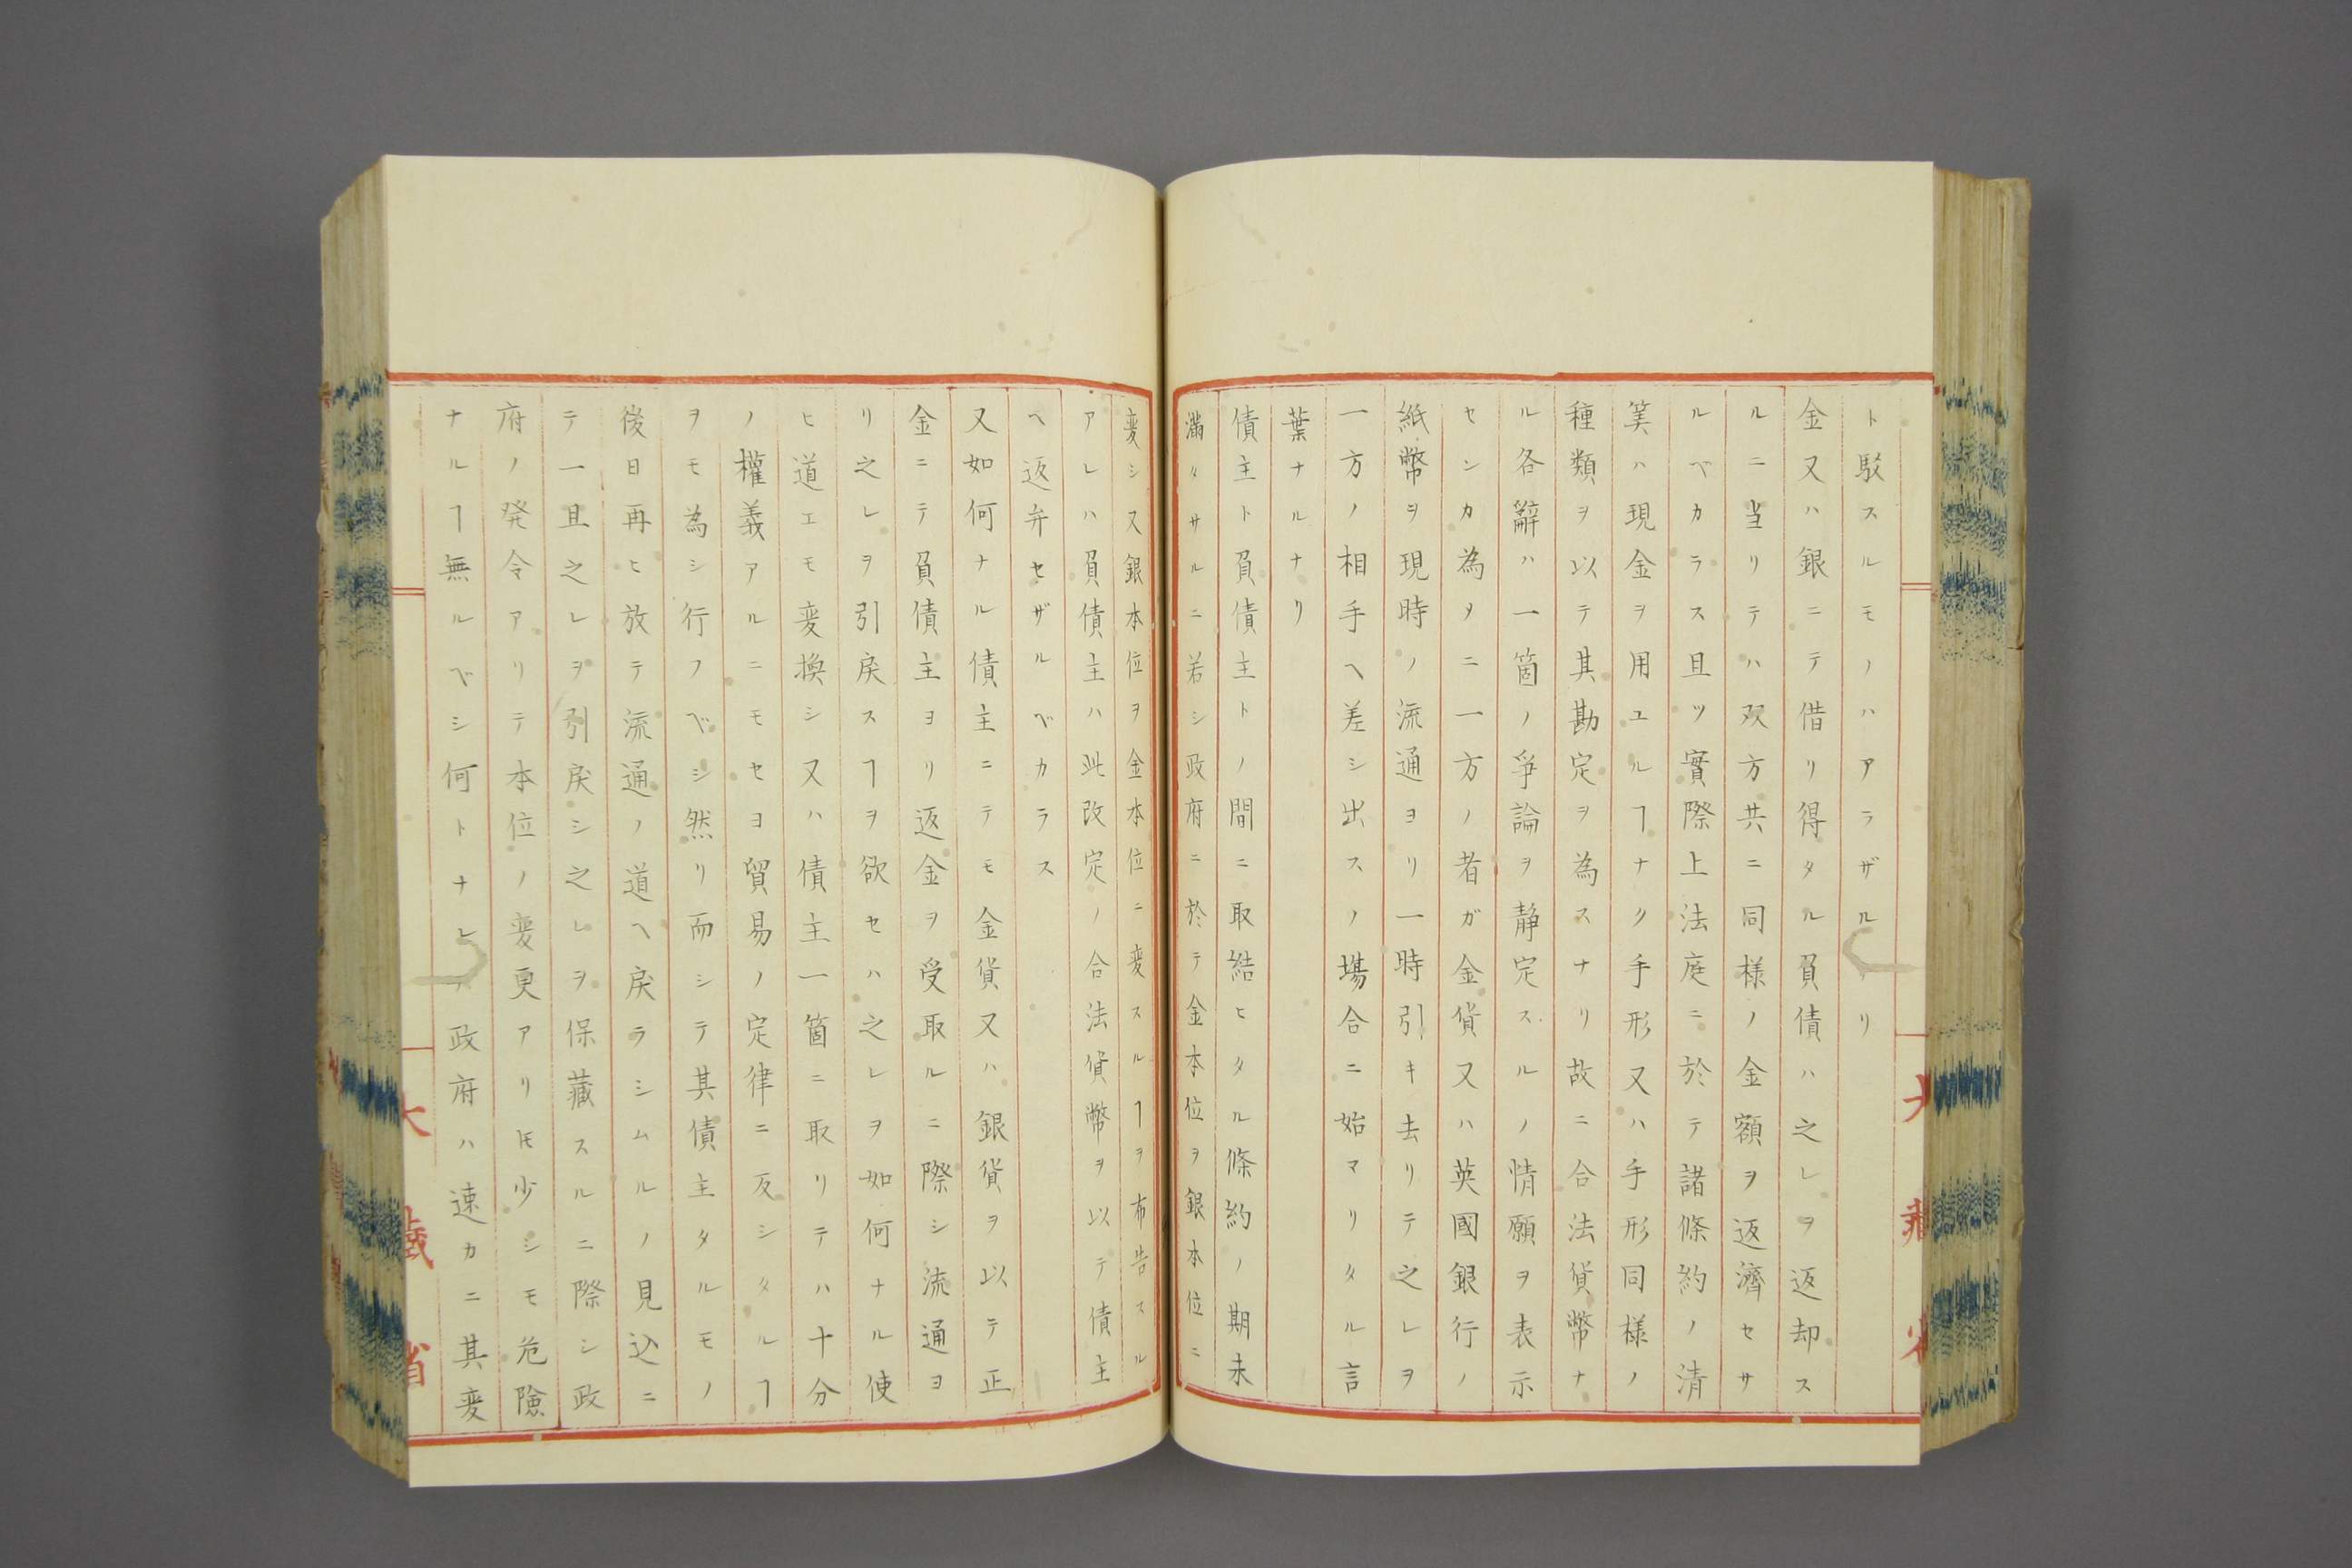 ト駁スルモノハアラザルナリ
金又ハ銀ニテ借リ得タル負債ハ之レヲ返却ス
ルニ当リテハ双方共ニ同様ノ金額ヲ返濟セサ
ルベカラス且ツ實際上法庭ニ於テ諸條約ノ清
筭ハ現金ヲ用ユルヿナク手形又ハ手形同様ノ
種類ヲ以テ其勘定ヲ為スナリ故ニ合法貨幣ナ
ル各辭ハ一箇ノ爭論ヲ静定スルノ情願ヲ表示
センカ為メニ一方ノ者ガ金貨又ハ英國銀行ノ
紙幣ヲ現時ノ流通ヨリ一時引キ去リテ之レヲ
一方ノ相手ヘ差シ出スノ塲合ニ始マリタル言
葉ナルナリ
債主ト負債主トノ間ニ取結ヒタル條約ノ期未
滿タサルニ若シ政府ニ於テ金本位ヲ銀本位ニ
変シ又銀本位ヲ金本位ニ変スルヿヲ布告スル
アレハ負債主ハ此改定ノ合法貨幣ヲ以テ債主
ヘ返弁セザルベカラス
又如何ナル債主ニテモ金貨又ハ銀貨ヲ以テ正
金ニテ負債主ヨリ返金ヲ受取ルニ際シ流通ヨ
リ之レヲ引戻スヿヲ欲セハ之レヲ如何ナル使
ヒ道エモ変換シ又ハ債主一箇ニ取リテハ十分
ノ權義アルニモセヨ貿易ノ定律ニ反シタルヿ
ヲモ為シ行フベシ然リ而シテ其債主タルモノ
後日再ヒ放テ流通ノ道ヘ戻ラシムルノ見込ニ
テ一且之レヲ引戻シ之レヲ保藏スルニ際シ政
府ノ発令アリテ本位ノ変更アリ𪜈少シモ危險
ナルヿ無ルベシ何トナレハ政府ハ速カニ其変
大藏省